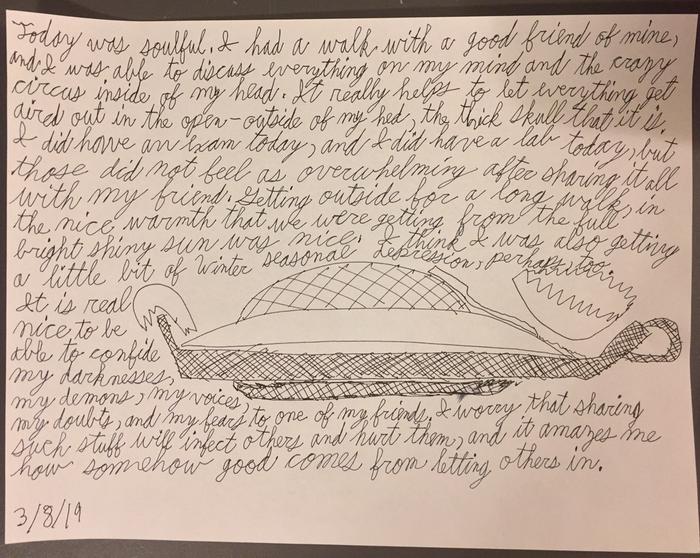 Today was soulful. I had a walk with a good friend of mine,
and I was able to discuss everything on my mind and the crazy
circus inside of my head. It really helps to let everything get
aired out in the open-outside of my hed, the thick skull that it is.
I did howe an exam today, and I did have a lab today, but
those did not feel as overwhelming after sharing it all
with my friend. Getting outside for a long walk, in
the nice warmth that we were getting from the full
bright shiny sun was nice. I think I was also getting
a little bit of Winter seasonal depression, perhaps, too.
It is real
nice to be
able to confide
my darknesses,
my demons, my voices,
my doubts, and my fears to one of my friends. I worry that sharing
such stuff will infect others and hurt them, and it amazes me
how somehow good comes from letting others in.
3/8/19